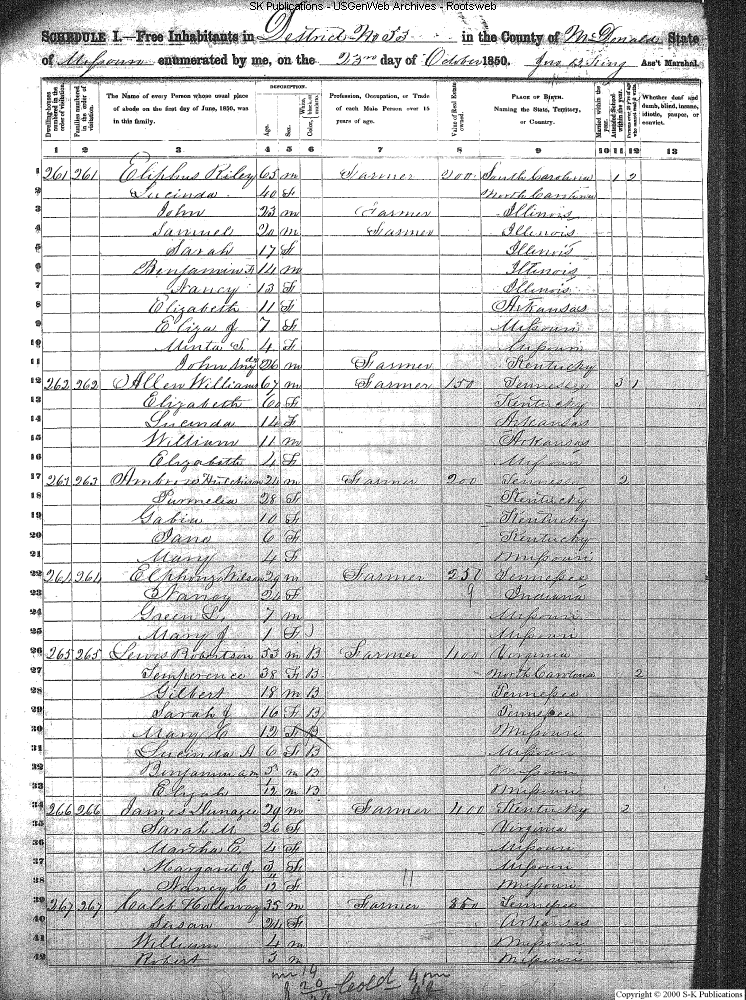 SK Publications - USGenWeb Archives - Rootsweb
SCHEDULE I.—Free Inhabitants in District No 53 in the County of McDonald State
of Missouri enumerated by me, on the 23rd day of October 1850. Ass't Marshal.
Dwelling-houses numbered in the order of visitation. Families numbered in the order of visitation. The Name of every Person whose usual place of abode on the first day of June, 1850, was in this family. DESCRIPTION. Age. Sex. Color, Profession, Occupation, or Trade of each Male Person over 15 years of age. Value of Real Estate owned. PLACE OF BIRTH. Naming the State, Territory, or Country. Married within the year. Attended School within the year. Whether deaf and dumb, blind, insane, idiotic, pauper, or convict.
1 2 3 4 5 6 7 8 9 10 11 12 13
1 261 261 Eliphus Riley 65 m Farmer 200 South Carolina 1 2
2 Lucinda 40 F North Carolina
3 John 23 m Farmer Illinois
4 Samuel 20 m Farmer Illinois
5 Sarah 17 F Illinois
6 Benjamin F 14 m Illinois
7 Nancy 13 F Illinois
8 Elizabeth 11 F Arkansas
9 Eliza J 7 F Missouri
10 4 F Missouri
11 John 26 m Farmer Kentucky
12 262 262 Allen Williams 67 m Farmer 150 Tennessee 3 1
13 Elizabeth 60 F Kentucky
14 Lucinda 14 F Arkansas
15 William 11 m Arkansas
16 Elizabeth 4 F Missouri
17 263 263 Ambrose Hutchison 24 m Farmer 200 Tennessee 2
18 Purmelia 28 F Kentucky
19 10 F Kentucky
20 Jane 6 F Kentucky
21 Mary 4 F Missouri
22 264 264 Wilson 29 m Farmer 250 Tennessee
23 Nancy 26 F 9 Indiana
24 Green L. 7 m Missouri
25 Mary J 1 F Missouri
26 265 265 Lewis Robertson 53 m B Farmer 400 Virginia
27 Temperence 38 F B North Carolina 2
28 Gilbert 18 m B Tennessee
29 Sarah J 16 F B Tennessee
30 Mary E 12 F B Missouri
31 Lucinda A 6 F B Missouri
32 Benjamin m B Missouri
33 Elijah m B Missouri
34 266 266 James 29 m Farmer 400 Kentucky 2
35 Sarah M 26 F Virginia
36 Martha E 4 F Missouri
37 Margaret J 3 F Missouri
38 Nancy C F Missouri
39 267 267 Caleb Holloway 35 m Farmer 350 Tennessee
40 Susan 24 F Arkansas
41 William 4 m Missouri
42 Robert 3 m Missouri
Copyright © 2000 S-K Publications